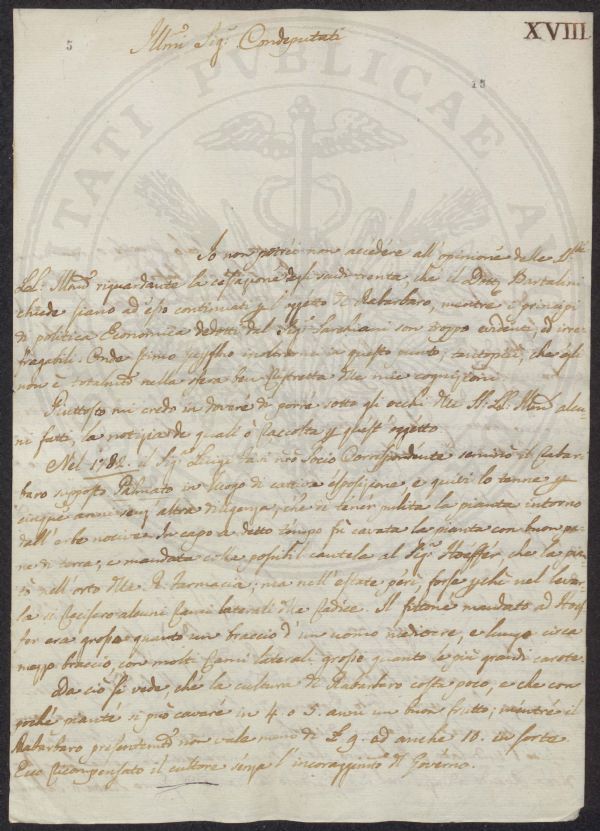 XVIII
5
Ill.mi Sig.ri Condeputati
15
Io non potrei non accedere all'opinione delle
riguardante la cessazione degli scudi trenta, che il Dott. Bartalini
chiede siano ad esso continuati p l'oggetto di Rabarbaro, mentre i principi
di politica Economica dedotti dal Sig.r son troppo evidenti, ed irre
fragabili. Onde stimo inoltrarmi in questo punto, tantopiù, che egli
non è nella sfera ben ristretta delle mie cognizioni
Piuttosto mi credo in dovere di porre sotto gli occhi alcu-
ni fatti, la notizia de quali ò raccolta p quest'oggetto.
Nel il Sig.r Luigi nostro Socio Corrispondente seminò il Rabar
baro supposto Palmato in luogo di cattiva esposizione, e quivi lo tenne p
cinque anni senz'altra diligenza, che di tener pulita la pianta intorno
dall'erbe nocive. In capo a detto tempo fù cavata la pianta con buon pa
ne di terra, e mandata colla possibil cautela al Sig.r Hoeffer, che la pian
tò nell'orto della R. Farmacia; ma nell'estate perì, forse pchè nel levar
la si recisero alcuni rami laterali della radice. Il fittone mandato ad Hoef
fer era grosso quanto un braccio d'un uomo mediocre, e lungo circa
mezzo braccio, con molti rami laterali grossi quanto le più grandi carote.
Da ciò si vede, che la cultura di Rabarbaro costa poco, e che con
poche piante si può cavare in 4. o 5. anni un buon frutto; mentre il
Rabarbaro presentemente non vale meno di £ 9. ed anche 10. la
Ecco ricompensato il cultore senza l'incoraggimento di Governo.